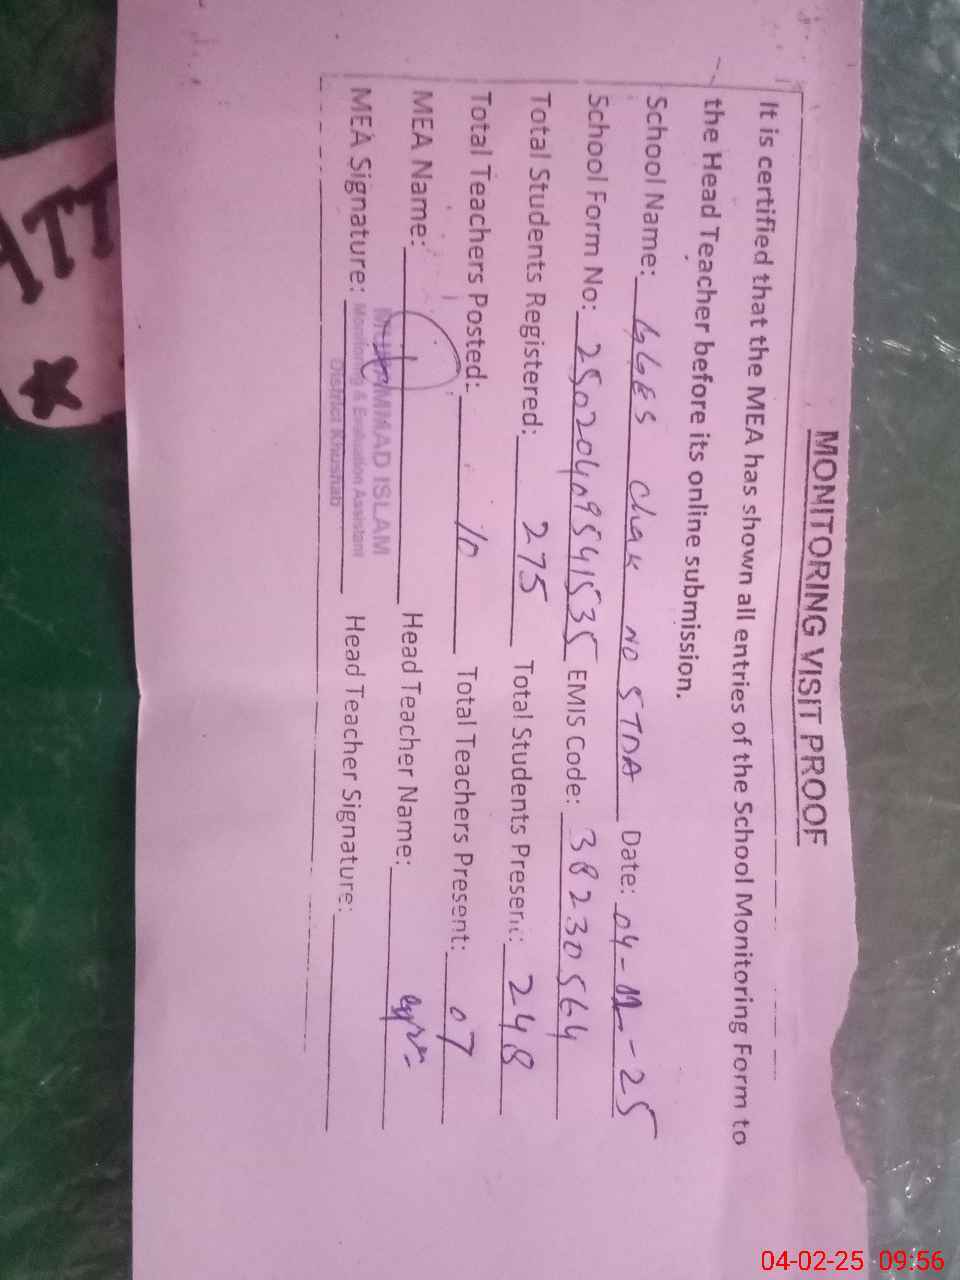 MONITORING VISIT PROOF
It is certified that the MEA has shown all entries of the School Monitoring Form to
the Head Teacher before its online submission.
School Name: GGES Chak NO 5 TDA Date: 04-02-25
School Form No: 25020409541535 EMIS Code: 38230564
Total Students Registered: 275 Total Students Present: 248
Total Teachers Posted: 10 Total Teachers Present: 07
MEA Name: Head Teacher Name:
MUHAMMAD ISLAM
Monitoring & Evaluation Assistant
District Khushab
MEA Signature: Head Teacher Signature:
04-02-25 09:56